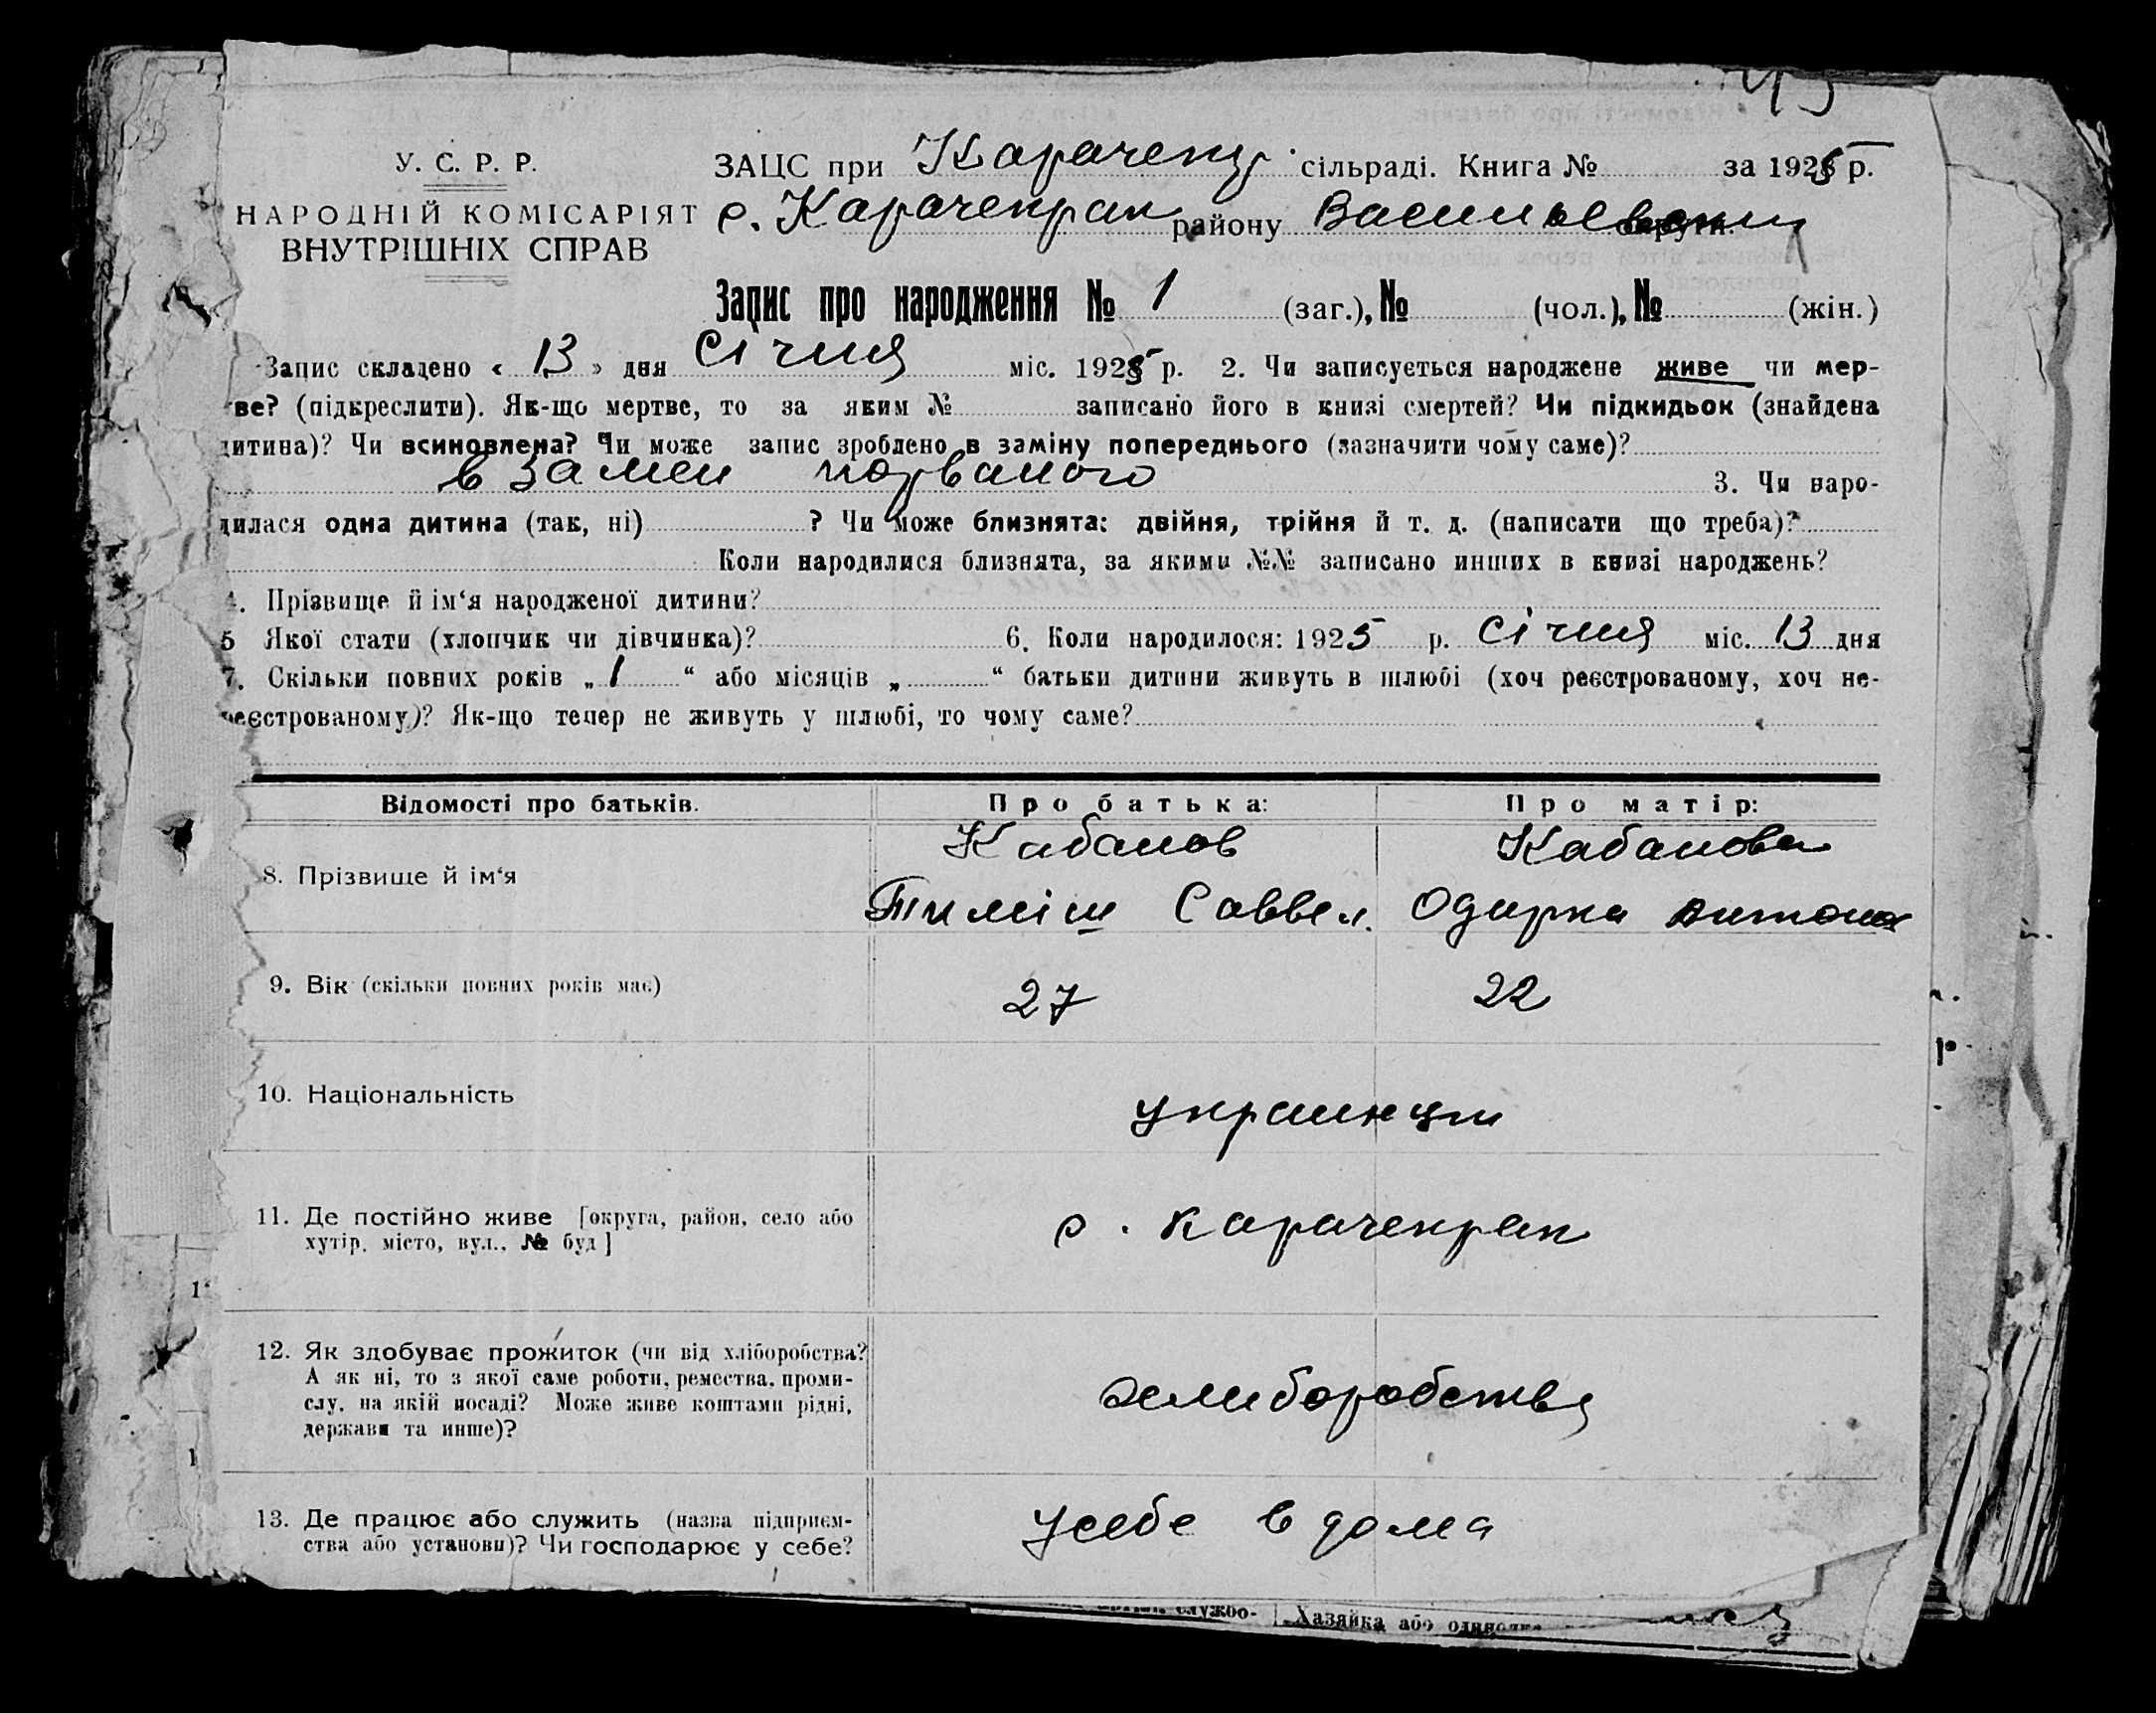 У. С. Р. Р.
НАРОДНІЙ КОМІСАРІЯТ
ВНУТРІШНІХ СПРАВ
ЗАЦС при Караченкр. сільраді. Книга № за 1925 р.
с. Карачекрак району Васильевском
Запис про народження № 1 (заг.), № (чол.), № (жін.)
Запис складено « 13 » дня Січня міс. 1925 р. 2. Чи записується народжене живе чи мер-
ве? (підкреслити). Як-що мертве, то за яким № записано його в книзі смертей? Чи підкидьок (знайдена
дитина)? Чи всиновлена? Чи може запис зроблено в заміну попереднього (зазначити чому саме)?
в замен порваного 3. Чи наро-
дилася одна дитина (так, ні) ? Чи може близнята: двійня, трійня й т. д. (написати що треба)?
Коли народилися близнята, за якими №№ записано инших в книзі народжень?
4. Прізвище й ім'я народженої дитини?
5 Якої стати (хлопчик чи дівчинка)? 6. Коли народилося: 1925 р. Січня міс. 13 дня
7. Скільки повних років „ 1 “ або місяців „ “ батьки дитини живуть в шлюбі (хоч реєстрованому, хоч не-
реєстрованому)? Як-що тепер не живуть у шлюбі, то чому саме?
Відомості про батьків. Про батька: Про матір:
8. Прізвище й ім'я
Кабанов
Тиміш Саввел.
Кабанова
Одарка Антонов
9. Вік (скільки повних років має) 27 22
10. Національність украинцы
11. Де постійно живе [округа, район, село або
хутір, місто, вул., № буд]
с. Карачекрак
12. Як здобуває прожиток (чи від хліборобства?
А як ні, то з якої саме роботи, ремества, проми-
слу, на якій посаді? Може живе коштами рідні,
держави та инше)?
хлиборобства
13. Де працює або служить (назва підприєм-
ства або установи)? Чи господарює у себе?
у себе в дома
службо- Хазяйка або